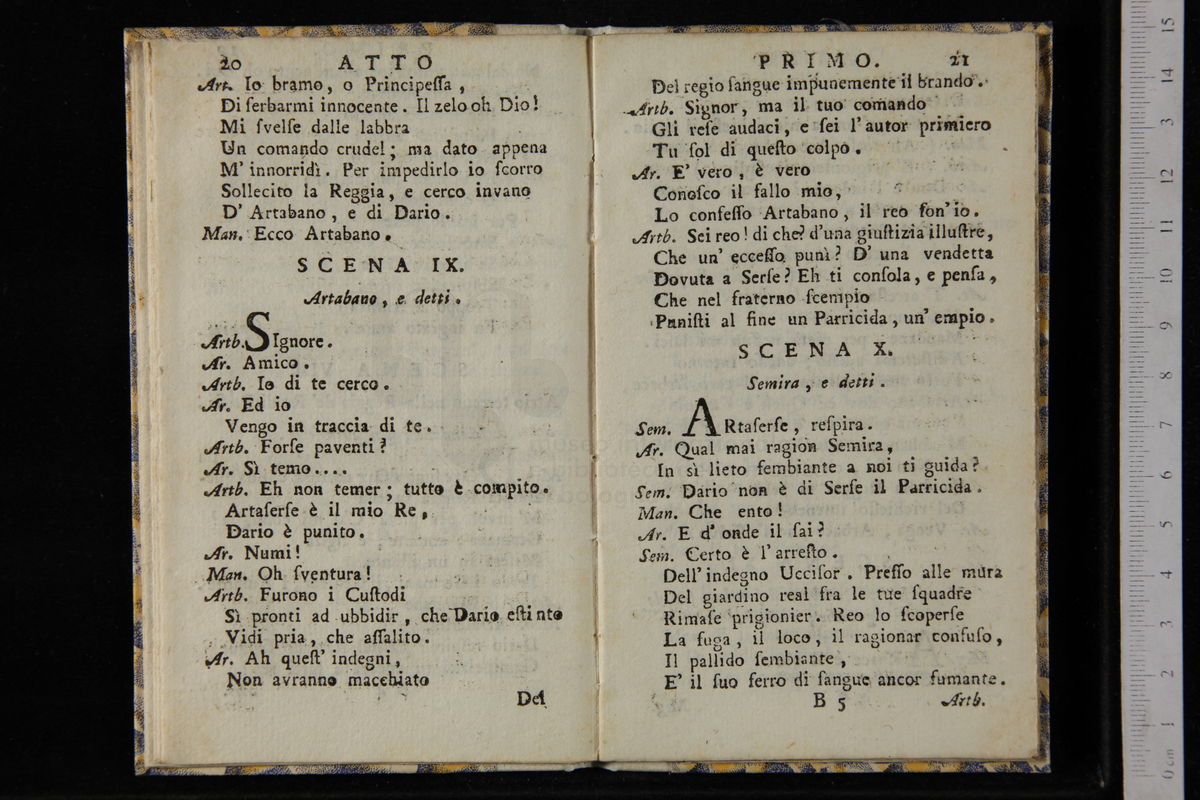 20 ATTO
Art. Io bramo, o Principeſſa,
Di ſerbarmi innocente. Il zelo oh Dio!
Mi ſvelſe dalle labbra
Un comando crudel; ma dato appena
M' innorridì. Per impedirlo io ſcorro
Sollecito la Reggia, e cerco invano
D' Artabano, e di Dario.
Man. Ecco Artabano.
SCENA IX.
Artabano, e detti.
Artb. SIgnore.
Ar. Amico.
Artb. Io di te cerco.
Ar. Ed io
Vengo in traccia di te.
Artb. Forſe paventi?
Ar. Sì temo....
Artb. Eh non temer; tutto è compito.
Artaſerſe è il mio Re,
Dario è punito.
Ar. Numi!
Man. Oh ſventura!
Artb. Furono i Cuſtodi
Sì pronti ad ubbidir, che Dario eſtinto
Vidi pria, che aſſalito.
Ar. Ah queſt' indegni,
Non avranno macchiato
Del
PRIMO. 21
Del regio ſangue impunemente il brando.
Artb. Signor, ma il tuo comando
Gli reſe audaci, e ſei l'autor primiero
Tu ſol di queſto colpo.
Ar. E' vero, è vero
Conoſco il fallo mio,
Lo confeſſo Artabano, il reo ſon' io.
Artb. Sei reo! di che? d'una giuſtizia illuſtre,
Che un' ecceſſo punì? D' una vendetta
Dovuta a Serſe? Eh ti conſola, e penſa,
Che nel fraterno ſcempio
Puniſti al fine un Parricida, un' empio.
SCENA X.
Semira, e detti.
Sem. ARtaſerſe, reſpira.
Ar. Qual mai ragion Semira,
In sì lieto ſembiante a noi ti guida?
Sem. Dario non è di Serſe il Parricida.
Man. Che ento!
Ar. E d' onde il ſai?
Sem. Certo è l'arreſto.
Dell' indegno Ucciſor. Preſſo alle mura
Del giardino real fra le tue ſquadre
Rimaſe prigionier. Reo lo ſcoperſe
La fuga, il loco, il ragionar confuſo,
Il pallido ſembiante,
E' il ſuo ferro di ſangue ancor fumante.
B 5 Artb.